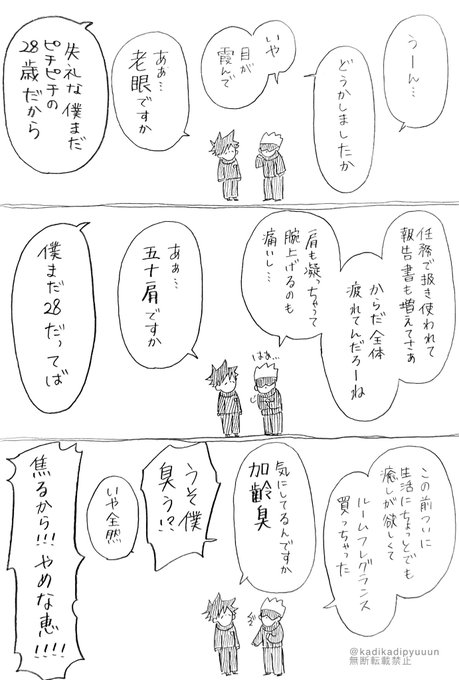 うーん…
どうかしましたか
いや
目が
霞んで
あぁ…
老眼ですか
失礼な僕まだ
ピチピチの
28歳だから
任務で扱き使われて
報告書も増えてさぁ
からだ全体
疲れてんだろーね
肩も凝っちゃって
腕上げるのも
痛いし…
はぁ…
あぁ…
五十肩ですか
僕まだ28だってば
この前ついに
生活にちょっとでも
癒しが欲しくて
ルームフレグランス
買っちゃった
気にしてるんですか
加齢臭
うそ僕
臭う!?
いや全然
焦るから!!!やめな恵!!!!
@kadikadipyuuun
無断転載禁止